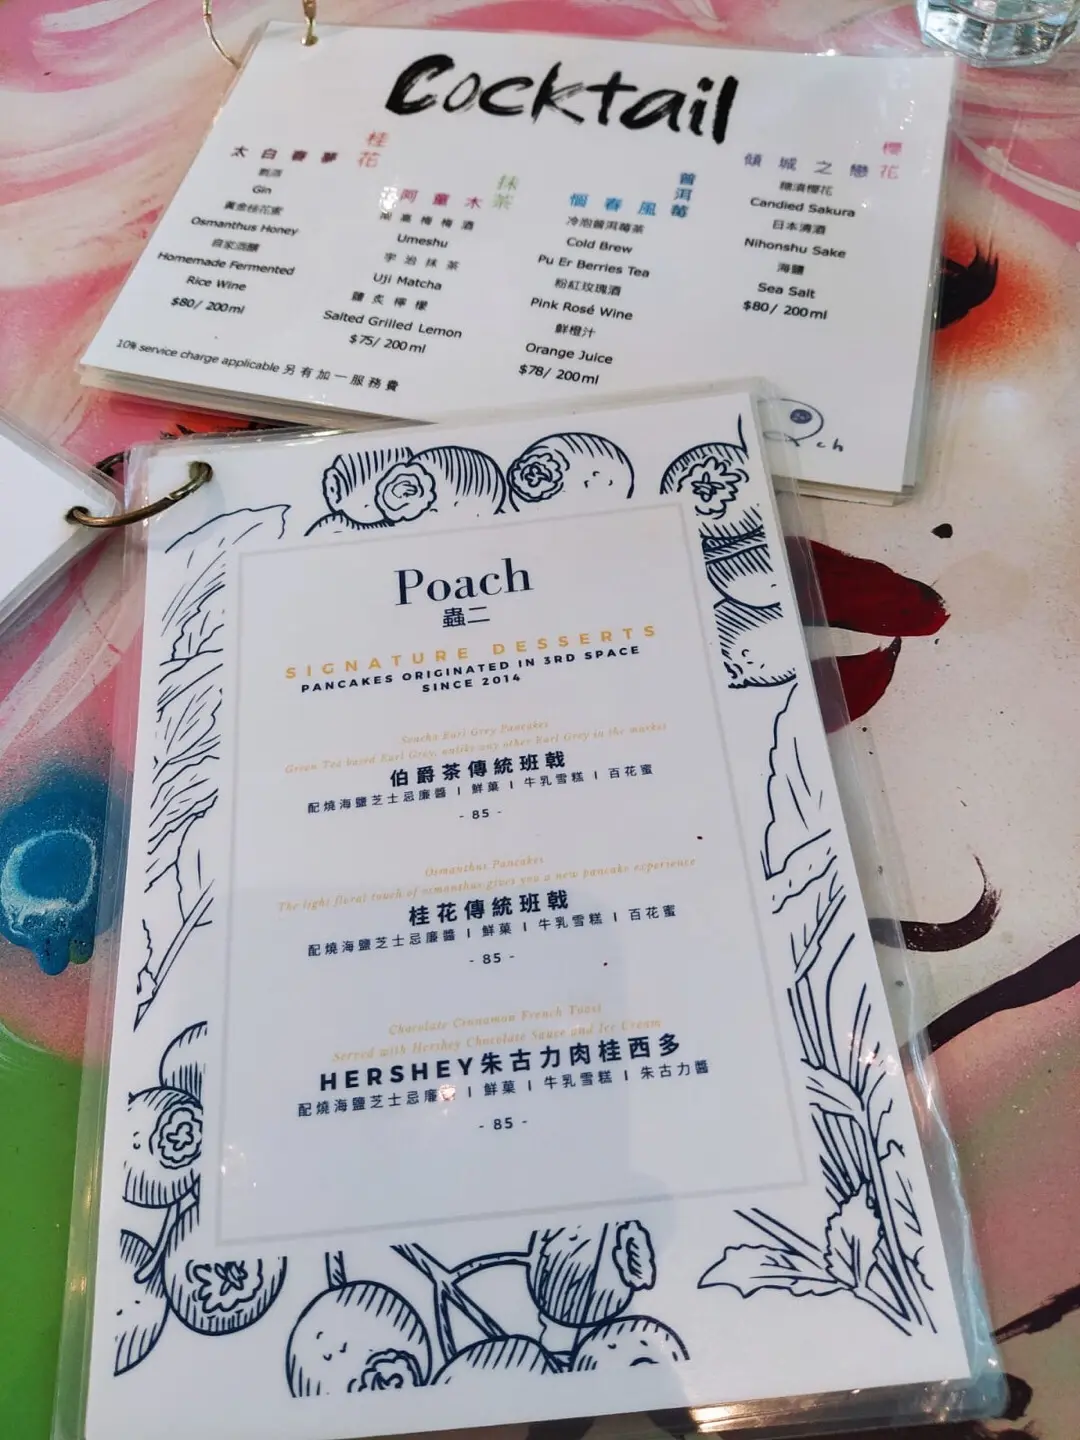 Cocktail
桂花
太白春夢
氈酒
Gin
黃金桂花蜜
Osmanthus Honey
自家酒釀
Homemade Fermented
Rice Wine
$80/ 200ml
抹茶
阿童木
梅酒
Umeshu
宇治抹茶
Uji Matcha
鹽炙檸檬
Salted Grilled Lemon
$75/ 200ml
普洱莓
惱春風
冷泡普洱莓茶
Cold Brew
Pu Er Berries Tea
粉紅玫瑰酒
Pink Rosé Wine
鮮橙汁
Orange Juice
$78/ 200ml
櫻花
傾城之戀
糖漬櫻花
Candied Sakura
日本清酒
Nihonshu Sake
海鹽
Sea Salt
$80/ 200ml
10% service charge applicable 另有加一服務費
Poach
蟲二
SIGNATURE DESSERTS
PANCAKES ORIGINATED IN 3RD SPACE
SINCE 2014
Sencha Earl Grey Pancakes
Green Tea based Earl Grey, unlike any other Earl Grey in the market
伯爵茶傳統班戟
配燒海鹽芝士忌廉醬 I 鮮菓 I 牛乳雪糕 I 百花蜜
- 85 -
Osmanthus Pancakes
The light floral touch of osmanthus gives you a new pancake experience
桂花傳統班戟
配燒海鹽芝士忌廉醬 I 鮮菓 I 牛乳雪糕 I 百花蜜
- 85 -
Chocolate Cinnamon French Toast
Served with Hershey Chocolate Sauce and Ice Cream
HERSHEY朱古力肉桂西多
配燒海鹽芝士忌廉醬 I 鮮菓 I 牛乳雪糕 I 朱古力醬
- 85 -